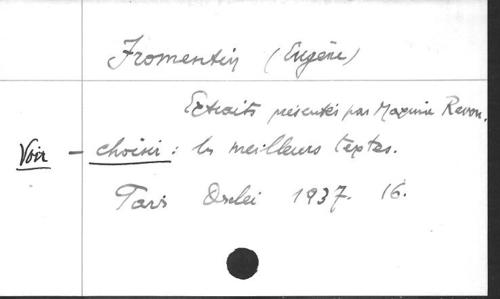 Fromentin (Eugène)
Extraits présentés par Maxime Revon.
Voir - choisir : les meilleurs textes.
Paris 1937. 16.